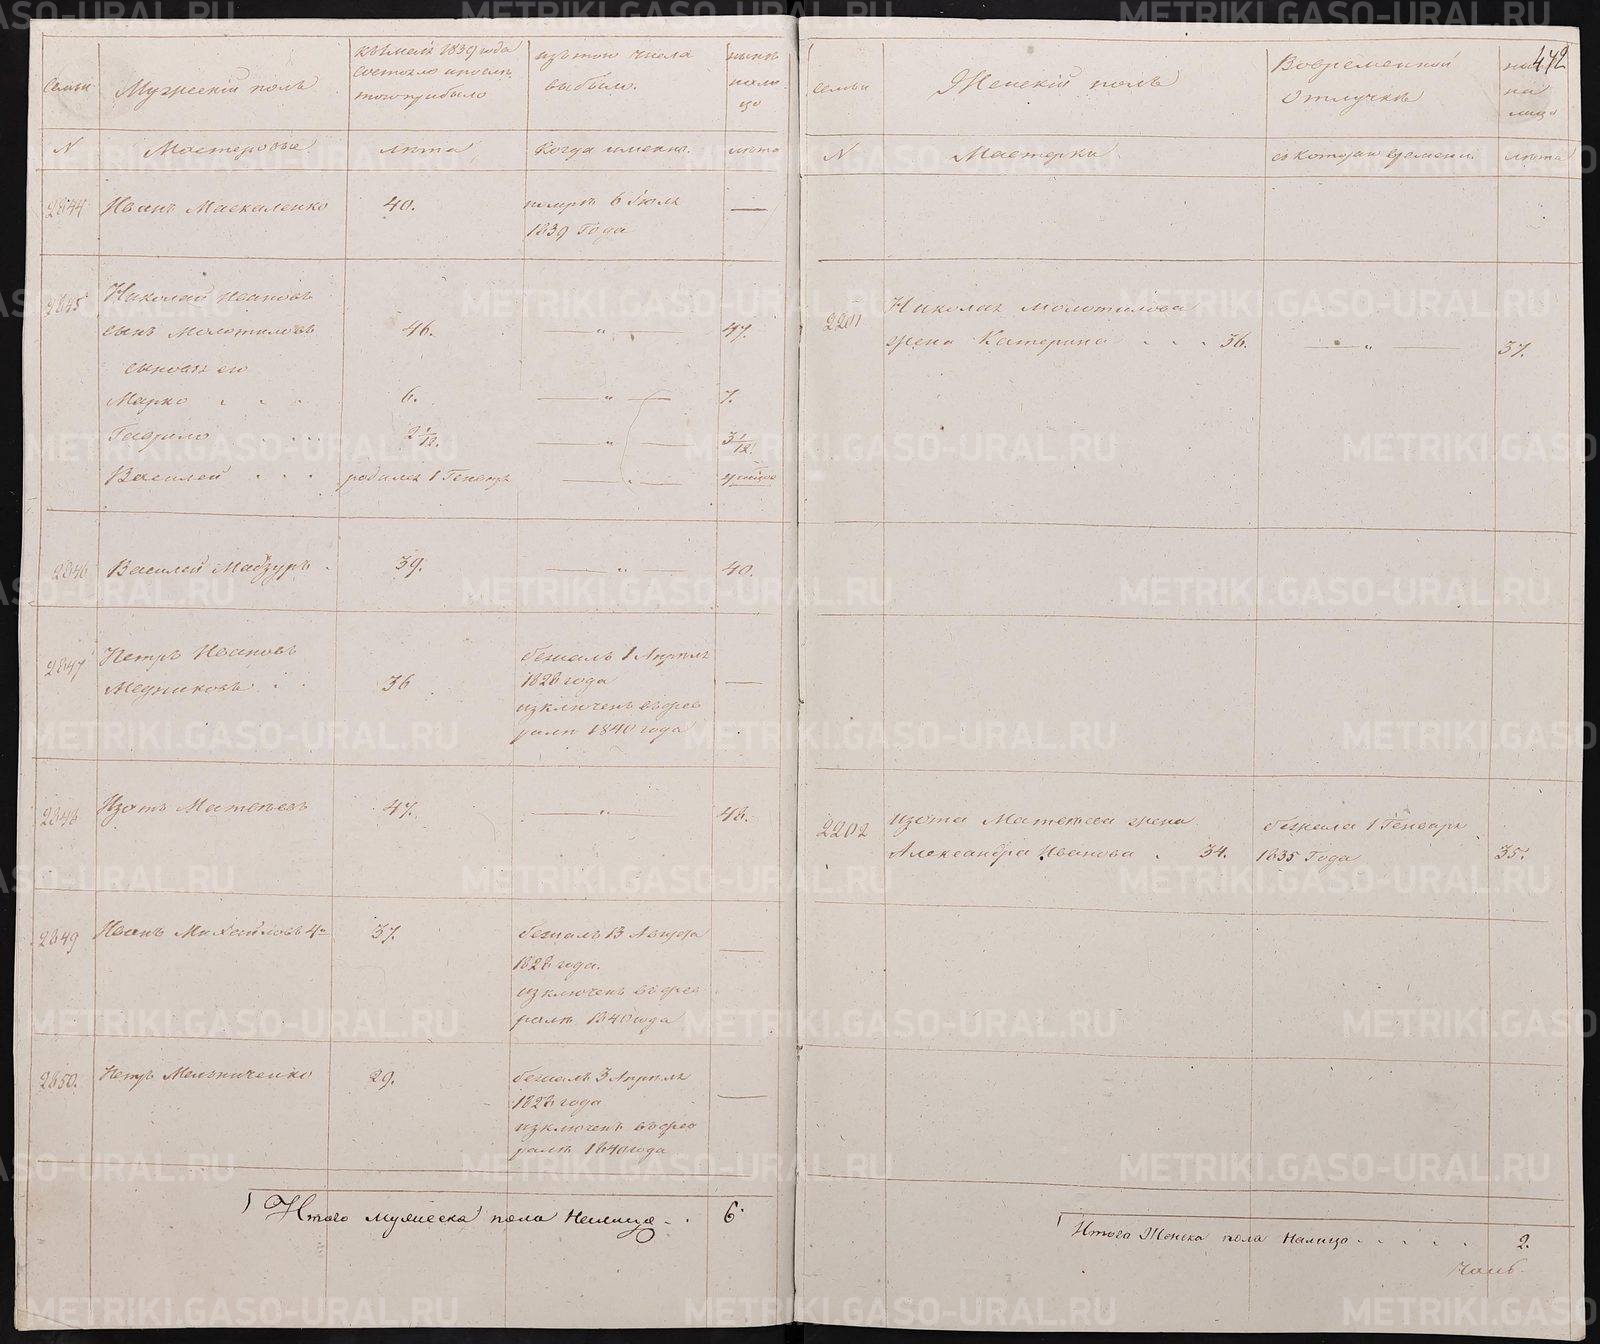 Семьи
Мужескій полъ
къ маю 1839 года
состояло и после
того прибыло
изъ того числа
выбыло.
нынѣ
нали
цо
N
Мастеровые
лѣта
Когда именно.
лѣта
2844
Иванъ Маскаленко
40.
умеръ 6 Іюля
1839 Года
—
2845
Николай Ивановъ
сынъ Молотиловъ
46.
— „ —
47.
сыновья его
Марко . . .
6.
— „ —
7.
Гаврило . . . .
2 1/12.
— „ —
3 1/12.
Василей . . .
родился 1 Генваря
— „ —
2846
Василей Мазуръ .
39.
— „ —
40.
2847
Петръ Ивановъ
Медниковъ . .
36
бежалъ 1 Апрѣля
1828 года
изключенъ въ фев
ралѣ 1840 года
—
2848
Изотъ Матвѣевъ
47.
— „ —
48.
2849
Иванъ Михайловъ 4й
37.
бежалъ 13 Августа
1828 года.
изключенъ въ фев
ралѣ 1840 года
—
2850.
Петръ Мельниченко
29.
бежалъ 3 Апрѣля
1828 года
изключенъ въ фев
ралѣ 1840 года
—
Итого мужеска пола Налицо . .
6.
472
Семьи
Женскій полъ
Во временной
Отлучкѣ
на
лицо
N
Мастерки
съ котораго времени.
лѣта
2201
Николая Молотилова
жена Катерина . . . 36.
— „ —
37.
2202
Изота Матвѣева жена
Александра Иванова . 34.
бежала 1 Генваря
1835 Года
35.
Итого Женска пола Налицо . . . . .
2.
METRIKI.GASO-URAL.RU